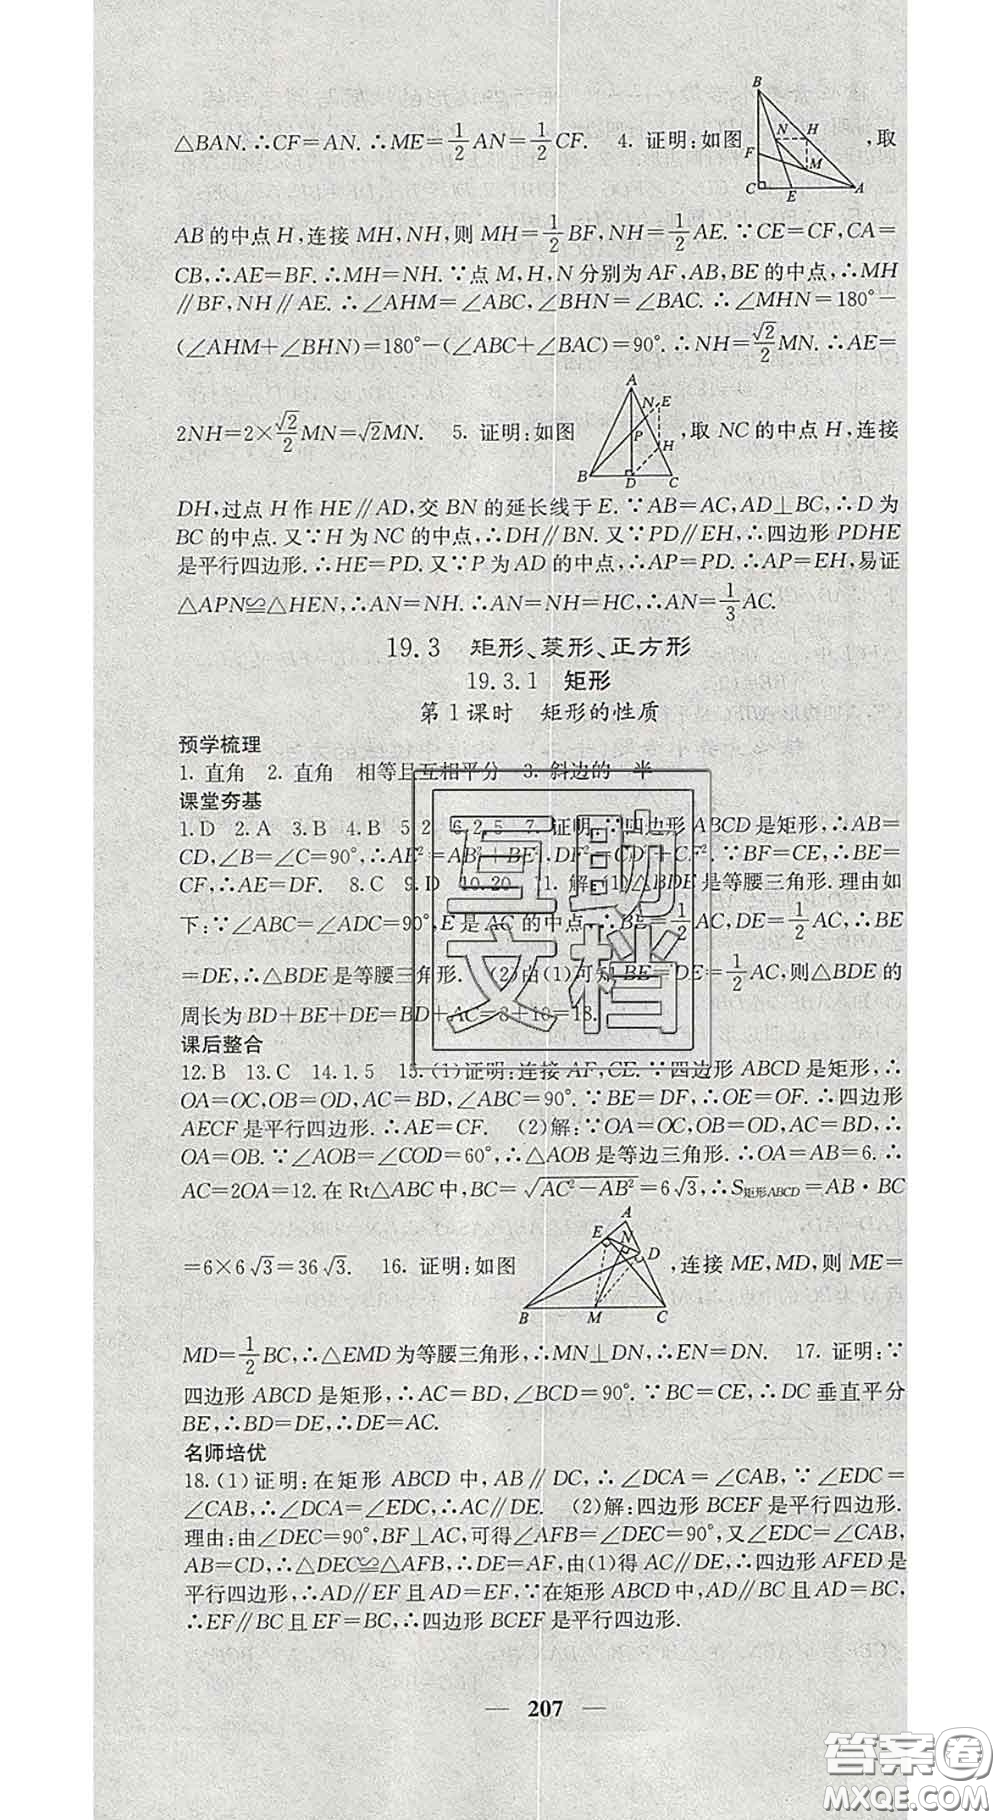 △BAN.∴CF=AN.∴ME=1/2AN=1/2CF. 4. 证明:如图,取
B
N H
F M
C E A
AB的中点H,连接MH,NH,则MH=1/2BF,NH=1/2AE.∵CE=CF,CA=
CB,∴AE=BF.∴MH=NH.∵点M,H,N分别为AF,AB,BE的中点,∴MH
∥BF,NH∥AE.∴∠AHM=∠ABC,∠BHN=∠BAC.∴∠MHN=180°-
(∠AHM+∠BHN)=180°-(∠ABC+∠BAC)=90°.∴NH=√2/2MN.∴AE=
2NH=2×√2/2MN=√2MN. 5. 证明:如图,取NC的中点H,连接
A
N E
P
H
B D C
DH,过点H作HE∥AD,交BN的延长线于E.∵AB=AC,AD⊥BC,∴D为
BC的中点.又∵H为NC的中点,∴DH∥BN.又∵PD∥EH,∴四边形PDHE
是平行四边形.∴HE=PD.又∵P为AD的中点,∴AP=PD.∴AP=EH,易证
△APN≌△HEN,∴AN=NH.∴AN=NH=HC,∴AN=1/3AC.
19.3 矩形、菱形、正方形
19.3.1 矩形
第1课时 矩形的性质
预学梳理
1. 直角 2. 直角 相等且互相平分 3. 斜边的一半
课堂夯基
1.D 2.A 3.B 4.B 5.2 6.2.5 7. 证明:∵四边形ABCD是矩形,∴AB=
CD,∠B=∠C=90°,∴AE²=AB²+BE²,DF²=CD²+CF².∵BF=CE,∴BE=
CF,∴AE=DF. 8.C 9.D 10.20 11. 解:(1)△BDE是等腰三角形.理由如
下:∵∠ABC=∠ADC=90°,E是AC的中点,∴BE=1/2AC,DE=1/2AC,∴BE
=DE,∴△BDE是等腰三角形. (2)由(1)可知,BE=DE=1/2AC,则△BDE的
周长为BD+BE+DE=BD+AC=8+10=18.
课后整合
12.B 13.C 14.1.5 15.(1)证明:连接AF,CE.∵四边形ABCD是矩形,∴
OA=OC,OB=OD,AC=BD,∠ABC=90°.∵BE=DF,∴OE=OF.∴四边形
AECF是平行四边形.∴AE=CF. (2)解:∵OA=OC,OB=OD,AC=BD,∴
OA=OB.∵∠AOB=∠COD=60°,∴△AOB是等边三角形.∴OA=AB=6.∴
AC=2OA=12.在Rt△ABC中,BC=√(AC²-AB²)=6√3,∴S矩形ABCD=AB·BC
=6×6√3=36√3. 16. 证明:如图,连接ME,MD,则ME=
A
E N
D
B M C
MD=1/2BC,∴△EMD为等腰三角形,∴MN⊥DN,∴EN=DN. 17. 证明:∵
四边形ABCD是矩形,∴AC=BD,∠BCD=90°.∵BC=CE,∴DC垂直平分
BE,∴BD=DE,∴DE=AC.
名师培优
18.(1)证明:在矩形ABCD中,AB∥DC,∴∠DCA=∠CAB,∵∠EDC=
∠CAB,∴∠DCA=∠EDC,∴AC∥DE. (2)解:四边形BCEF是平行四边形.
理由:由∠DEC=90°,BF⊥AC,可得∠AFB=∠DEC=90°,又∠EDC=∠CAB,
AB=CD,∴△DEC≌△AFB,∴DE=AF,由(1)得AC∥DE,∴四边形AFED是
平行四边形,∴AD∥EF且AD=EF,∵在矩形ABCD中,AD∥BC且AD=BC,
∴EF∥BC且EF=BC,∴四边形BCEF是平行四边形.
— 207 —
互助
文档
答案圈
MXQE.COM